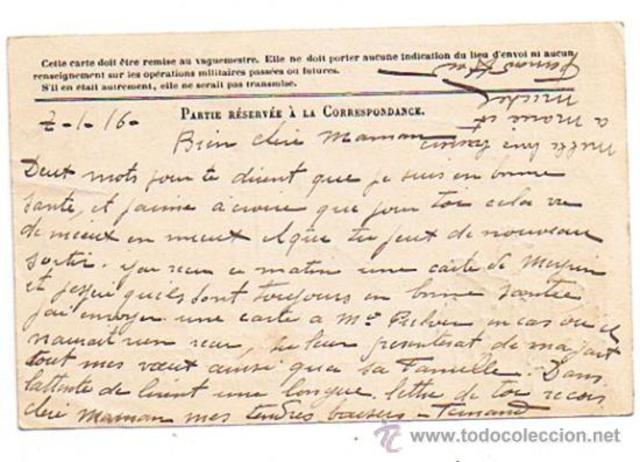 Cette carte doit être remise au vaguemestre. Elle ne doit porter aucune indication du lieu d'envoi ni aucun
renseignement sur les opérations militaires passées ou futures.
S'il en était autrement, elle ne serait pas transmise.
2-1-16-
PARTIE RÉSERVÉE À LA CORRESPONDANCE.
Bien chère Maman
Deux mots pour te disent que je suis en bonne
sante, et j'aime à croire que pour toi cela va
de mieux en mieux et que tu peut de nouveau
sortir. j'ai recu ce matin une carte de
et qu'ils sont toujours en bonne santée
j'ai envoyer une carte à Mr en cas ou il
naurait rien recu, tu leur de ma part
tout mes vœux ainsi que sa Famille. Dans
lattente de lirent une longue lettre de toi recois
chère Maman mes tendres baisers - Fernand
à et
www.todocoleccion.net